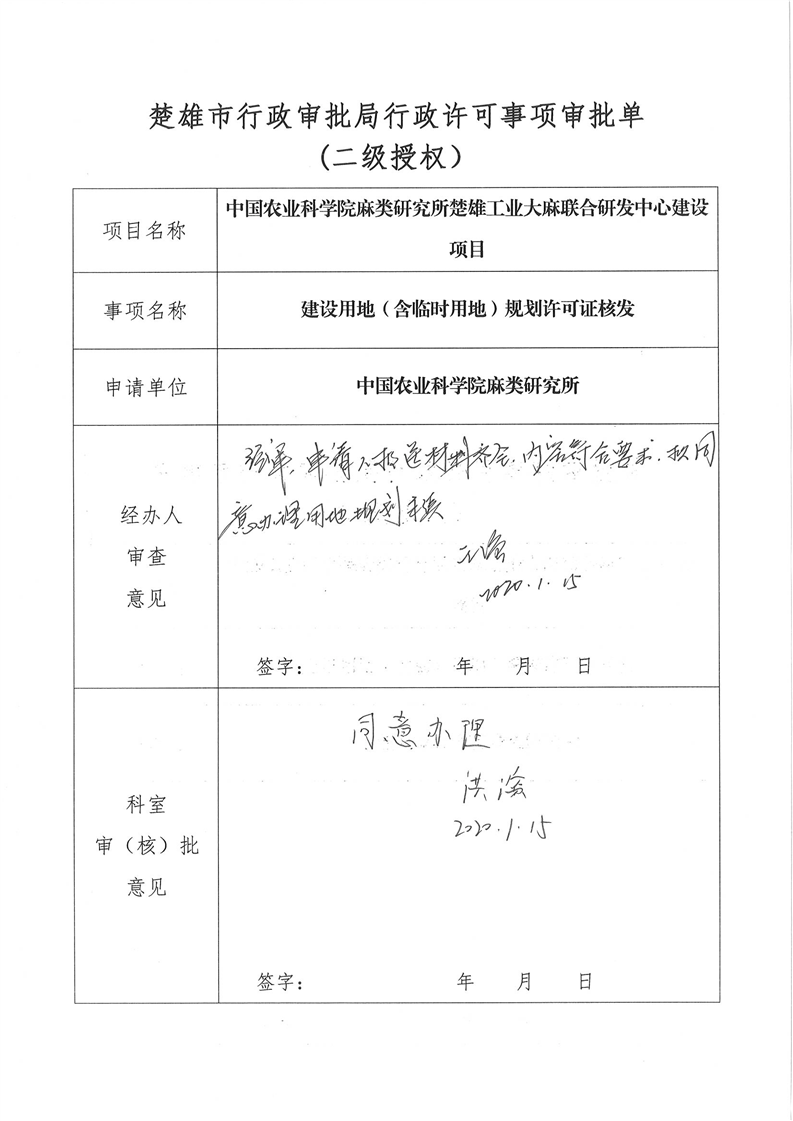 楚雄市行政审批局行政许可事项审批单
(二级授权）
项目名称
中国农业科学院麻类研究所楚雄工业大麻联合研发中心建设
项目
事项名称
建设用地（含临时用地）规划许可证核发
申请单位
中国农业科学院麻类研究所
经办人
审查
意见
申请人报送材料齐全，内容符合要求，拟同
意办理用地规划手续
2020.1.15
签字： 年 月 日
科室
审（核）批
意见
同意办理
洪
2020.1.15
签字： 年 月 日